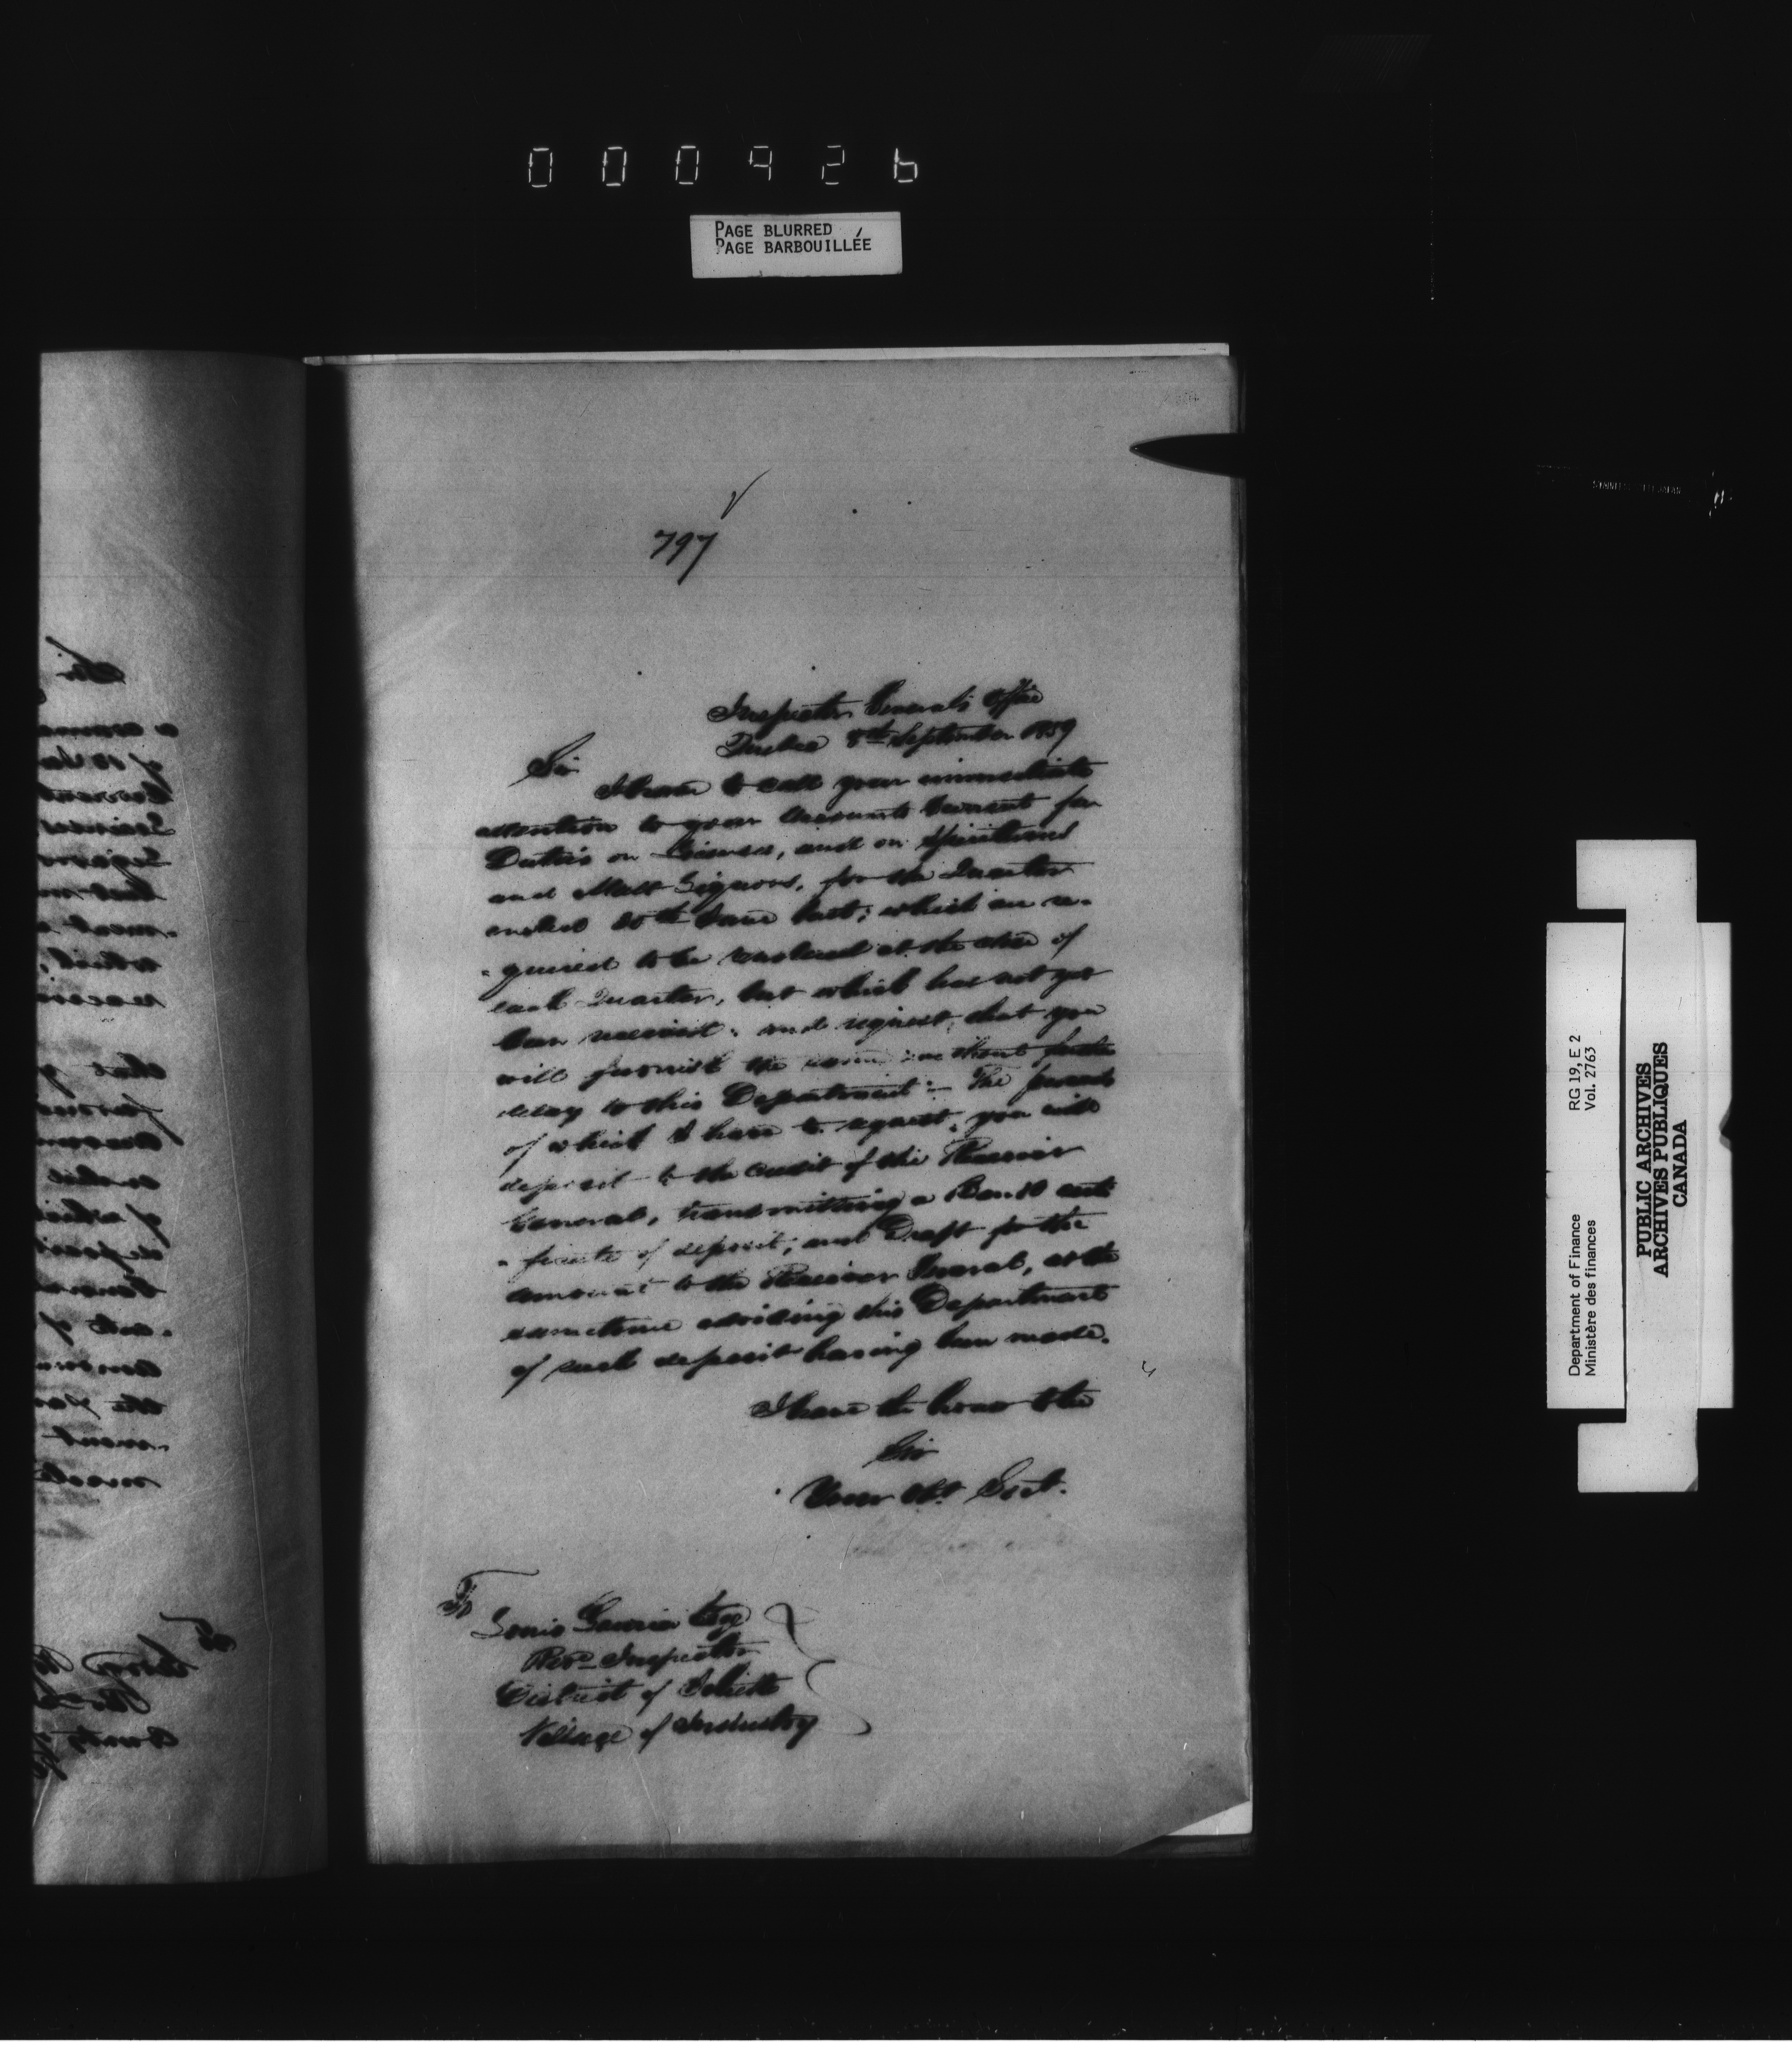 000926
PAGE BLURRED
PAGE BARBOUILLÉE
797
Inspector General's Office
Quebec 8th September 1859
Sir
I have to call your immediate
attention to your Accounts Current for
Duties on Licenses, and on Spirituous
and Malt Liquors, for the Quarter
ended 30th June last; which are re-
-quired to be rendered at the close of
each Quarter, but which has not yet
been received; and request, that you
will furnish the same without further
delay to this Department:- The proceeds
of which I have to request, you will
deposit to the credit of the Receiver
General, transmitting a Bank certi
-ficate of deposit; and Draft for the
amount to the Receiver General, at the
sametime advising this Department
of such deposit having been made.
I have the honor to be
Sir
Your Obt. Servt.
To
Louis Esqr
Revn Inspector
District of Joliette
Village of Industry
Department of Finance RG 19, E 2
Ministère des finances Vol. 2763
PUBLIC ARCHIVES
ARCHIVES PUBLIQUES
CANADA